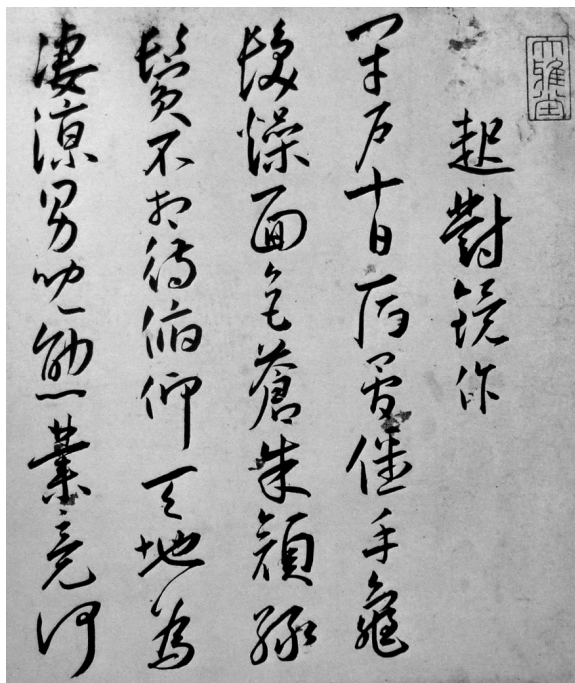 大雅堂
起對鏡作
閉戶十日病僵手龜
髮燥面色蒼朱顏綠
鬢不相待俯仰天地為
淒涼男兒勳業竟何